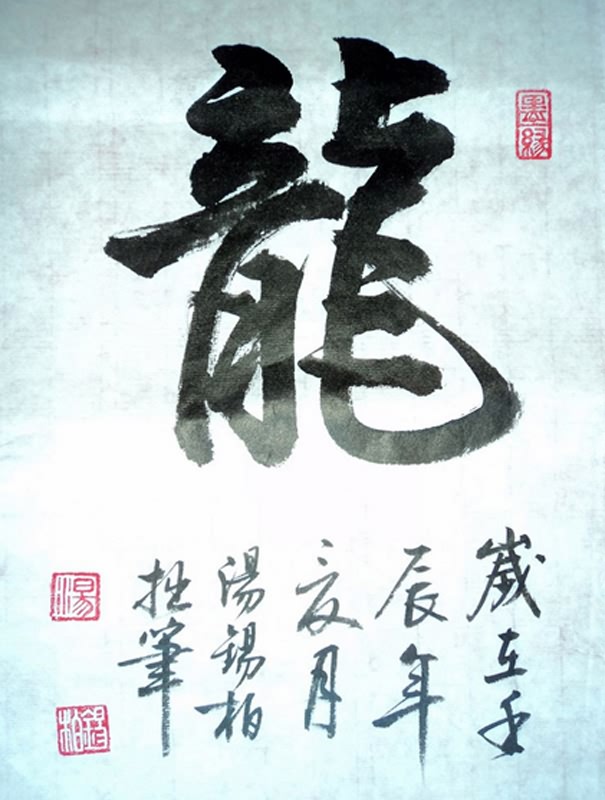 龍
墨緣
歲在壬
辰年
亥月
湯錫柏
拙筆
湯
錫柏